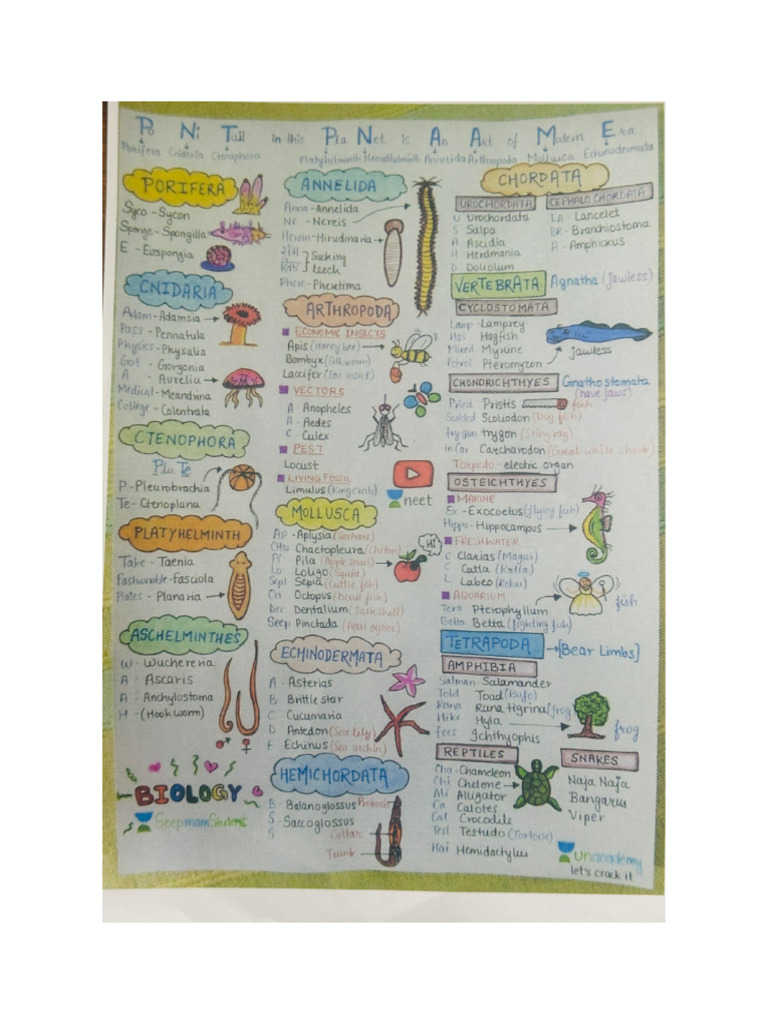 Po Ni Tail in this Pla Net is An Art of Modern Era
Porifera Cnidaria Ctenophora Platyhelminth Annelida Arthropoda Mollusca Echinodermata
PORIFERA
Syco - Sycon
Sponge - Spongilla
E - Euspongia
CNIDARIA
Adam - Adamsia
Pass - Pennatula
Physics - Physalia
Got - Gorgonia
A - Aurelia
Medical - Meandrina
College -
CTENOPHORA
Plu Te
P - Pleurobrachia
Te - Ctenoplana
PLATYHELMINTH
Take - Taenia
Fashionable - fasciola
Plates - Planaria
ASCHELMINTHES
W - Wuchereria
A : Ascaris
A : Anchylostoma
H - (Hookworm)
BIOLOGY
SeepmamStudent
ANNELIDA
Anna - Annelida
Ne - Nereis
Heroin - Hirudinaria
Sucking
leech
Phere - Pheretima
ARTHROPODA
ECONOMIC INSECTS
Apis (Honey bee)
Bombyx (Silkworm)
Laccifer (lac insect)
VECTORS
A Anopheles
A - Aedes
C - Culex
PEST
Locust
LIVING FOSSIL
Limulus (King Crab)
neet
MOLLUSCA
Ap - Aplysia (Seahare)
Chaetopleura (chiton)
Pi Pila (Apple snail)
Lo Loligo (Squid)
Sepi Sepia (Cuttle fish)
Oct Octopus (Devil fish)
Den Dentalium (Tuskshell)
Seep Pinctada (Pearl oyster)
Hi
ECHINODERMATA
A - Asterias
B Brittle star
C Cucumaria
D Antedon (Sea lily)
E Echinus (Sea urchin)
HEMICHORDATA
B - Balanoglossus Proboscis
S - Saccoglossus
S
Collar
Trunk
CHORDATA
UROCHORDATA
U Urochordata
S Salpa
A Ascidia
H Herdmania
D Doliolum
CEPHALOCHORDATA
LA - Lancelet
BR - Branchiostoma
A - Amphioxus
VERTEBRATA Agnatha (jawless)
CYCLOSTOMATA
Lamp - Lamprey
Has Hagfish
Mixed Myxine
Petrol Pteromyzon
jawless
CHONDRICHTHYES Gnathostomata
(have jaws)
Pristis fish
Scoliodon (Dog fish)
trygon trygon (Sting ray)
in Car Carcharodon (Great white shark)
Torpedo - electric organ
OSTEICHTHYES
MARINE
Ex - Exocoetus (flying fish)
Hippo - Hippocampus
FRESHWATER
C Clarias (Magur)
C Catla (Katla)
L Labeo (Rohu)
AQUARIUM
Tera Pterophyllum
Betta Betta (fighting fish)
fish
TETRAPODA [Bear Limbs]
AMPHIBIA
Salman Salamander
Told Toad (Bufo)
Rana Rana tigrina (frog
Hike Hyla frog
fees Ichthyophis
REPTILES
Cha - Chameleon
Chi Chelone
Ali Alligator
Ca Calotes
Cal Crocodile
Test Testudo (Tortoise)
Hai Hemidactylus
SNAKES
Naja Naja
Bangarus
Viper
Unacademy
let's crack it